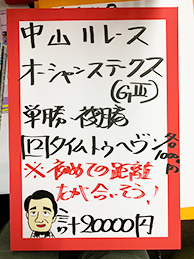 中山11レース
オーシャンステークス
(GⅢ)
単勝・複勝
[12]タイムトゥヘヴン 各10000円
※初めての距離
だが合いそう!
計20000円